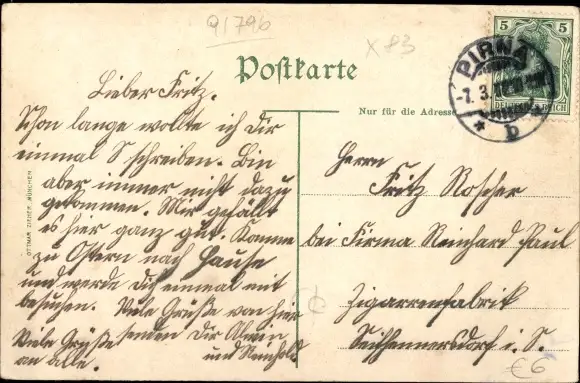 91796
X 83
Postkarte
Nur für die Adresse
5 5
DEUTSCHES REICH
PIRNA
-7. 3. 12
* b *
OTTMAR ZIEHER, MÜNCHEN
Lieber Fritz.
Schon lange wollte ich dir
einmal schreiben. Bin
aber immer nicht dazu
gekommen. Mir gefällt
es hier ganz gut. Komme
zu Ostern nach Hause
und werde dich einmal mit
besuchen. Viele Grüße von hier
senden Dir Alwin
und Reinhold
Viele Grüße
an alle.
Herrn
Fritz Roscher
bei Firma Reinhard Paul
Zigarrenfabrik
Seifhennersdorf i. S.
€6